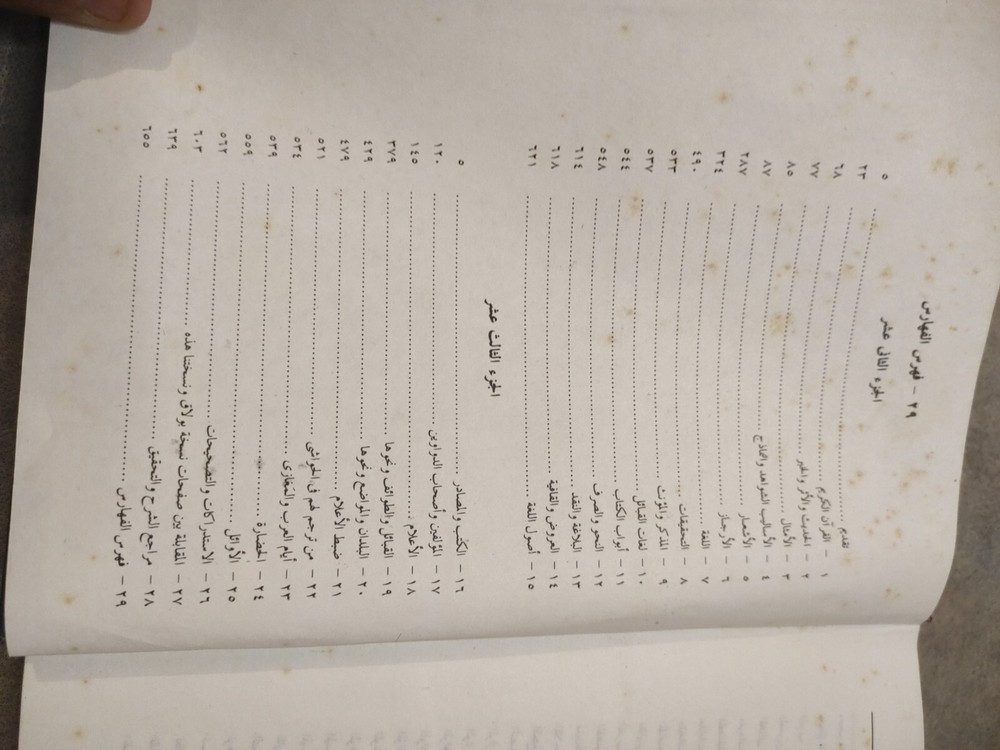 ٢٩ - فهرس الفهارس
الجزء الثانى عشر
تقديم ........ ٥
١ - القرآن الكريم ........ ٢٣
٢ - الحديث والأثر والخبر ........ ٦٨
٣ - الأمثال ........ ٧٧
٤ - الأساليب الشواهد والنماذج ........ ٨٥
٥ - الأشعار ........ ٨٧
٦ - الأرجاز ........ ٢٨٧
٧ - اللغة ........ ٣٢٤
٨ - التحقيقات ........ ٤٩٠
٩ - المذكر والمؤنث ........ ٥٣٣
١٠ - لغات القبائل ........ ٥٣٧
١١ - أبواب الكتاب ........ ٥٤٤
١٢ - النحو والصرف ........ ٥٤٨
١٣ - البلاغة والنقد ........ ٦١٤
١٤ - العروض والقافية ........ ٦١٨
١٥ - أصول اللغة ........ ٦٢١
الجزء الثالث عشر
١٦ - الكتب والمصادر ........ ٥
١٧ - المؤلفين وأصحاب الدواوين ........ ١٢٠
١٨ - الأعلام ........ ١٤٥
١٩ - القبائل والطوائف ونحوها ........ ٣٧٩
٢٠ - البلدان والمواضع ونحوها ........ ٤٢٩
٢١ - ضبط الأعلام ........ ٤٧٩
٢٢ - من ترجم لهم فى الحواشى ........ ٥٢١
٢٣ - أيام العرب والمغازى ........ ٥٣٤
٢٤ - الحضارة ........ ٥٣٩
٢٥ - الأوائل ........ ٥٥٩
٢٦ - الاستدراكات والتصحيحات ........ ٥٦٢
٢٧ - المقابلة بين صفحات نسخة بولاق ونسختنا هذه ........ ٦٠٣
٢٨ - مراجع الشرح والتحقيق ........ ٦٣٩
٢٩ - فهرس الفهارس ........ ٦٥٥